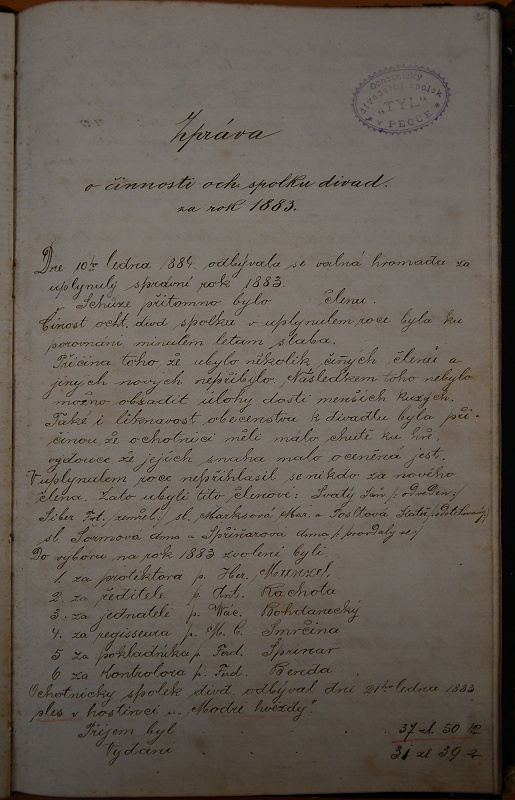 Ochotnický
divadelní spolek
"TYL"
v PECCE
Zpráva
o činnosti och. spolku divad.
za rok 1883.
Dne 10ho ledna 1884. odbývala se valná hromada za
uplynulý správní rok 1883.
Schůze přítomno bylo členů.
Činost ocht. divd spolku v uplynulem roce byla ku
porovnání minulem letam slaba.
Příčina toho, že ubylo několik činých členů a
jiných nových nepřibylo. Následkem toho nebylo
možno obsadit úlohy dosti menších kuzých.
Také i liknavost obecenstva k divadlu byla pří-
činou, že ochotníci měli málo chutě ku hře,
vydouce že jejich snaha málo oceněna jest.
V uplynulem roce nepřihlasil se nikdo za nového
člena. Zato ubyli tito členove: Svatý Jan /: odveden :/
Siber Frt. /: zemřel :/ sl. Marksová Mar. a Šoltová Kateř.
sl. Šormova Anna a Šprinarova Anna /: provdaly se :/
Do výboru na rok 1883 zvoleni byli:
1. za protektora p. Her. Munzel,
2. za ředitele p. Ant. Rachota
3. za jednatele p. Vac. Bohdanecký
4. za regisseura p. M. C. Smrčina
5 za pokladníka p. Ferd. Šprinar
6 za Kontrolora p. Ferd. Benda
Ochotnický spolek divd. odbýval dne 21ho ledna 1883
ples v hostinci u „Modré hvězdy".
Příjem byl 37 zl. 50 kr
Vydání 31 zl 39 kr